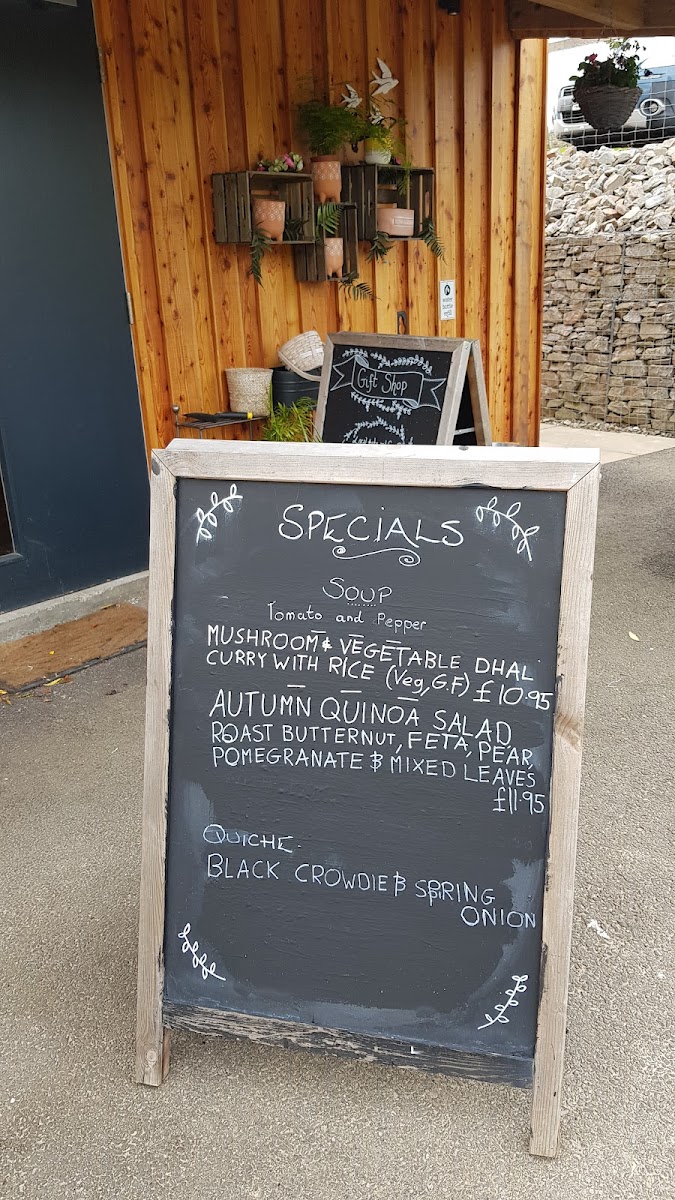 Gift Shop
SPECiALS
SOUP
Tomato and Pepper
MUSHROOM & VEGETABLE DHAL
CURRY WITH RICE (Veg, G.F) £10.95
AUTUMN QUINOA SALAD
ROAST BUTTERNUT, FETA, PEAR,
POMEGRANATE & MIXED LEAVES
£11.95
QUICHE
BLACK CROWDIE & SPRING
ONION